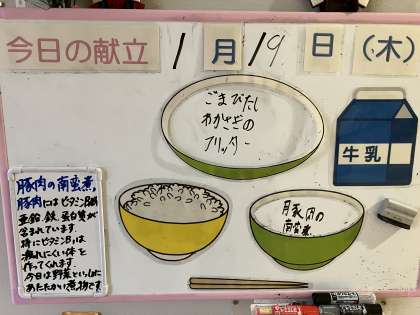 今日の献立 1月19日(木)
ごまびたし
わかさぎの
フリッター
牛乳
豚肉の
南蛮煮
豚肉の南蛮煮
豚肉にはビタミンB群
亜鉛、鉄、蛋白質が
含まれています。
特にビタミンB₁は
疲れにくい体を
作ってくれます。
今日は野菜といっしょに
あたたかい煮物です